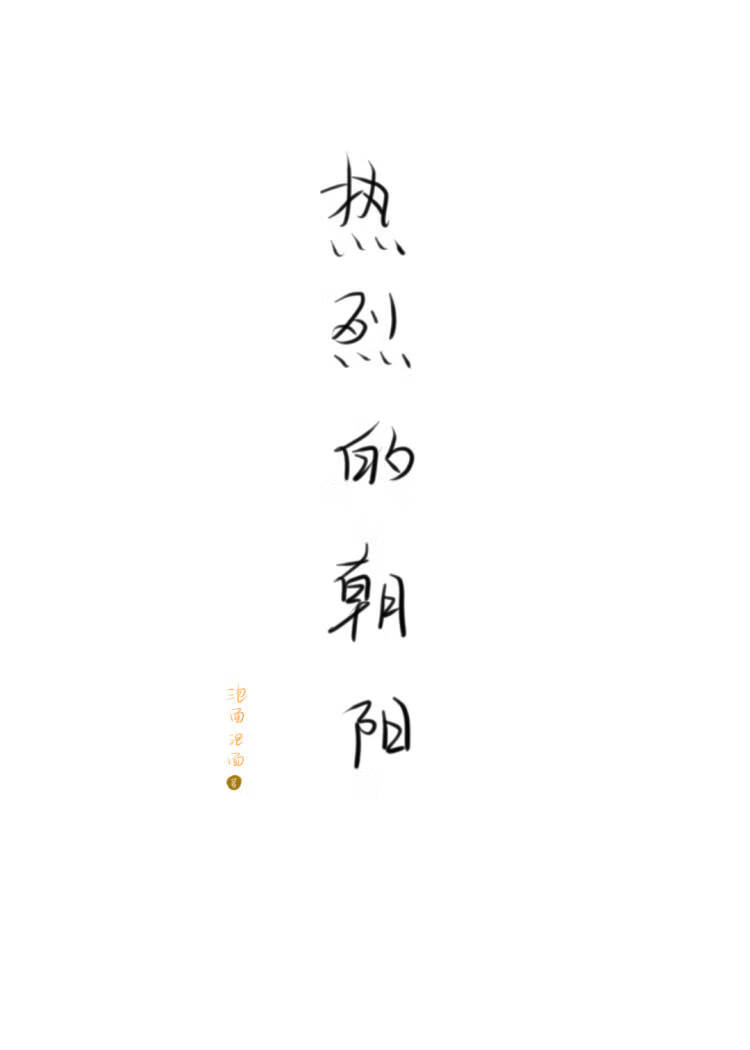 热烈的朝阳
泡面泡面